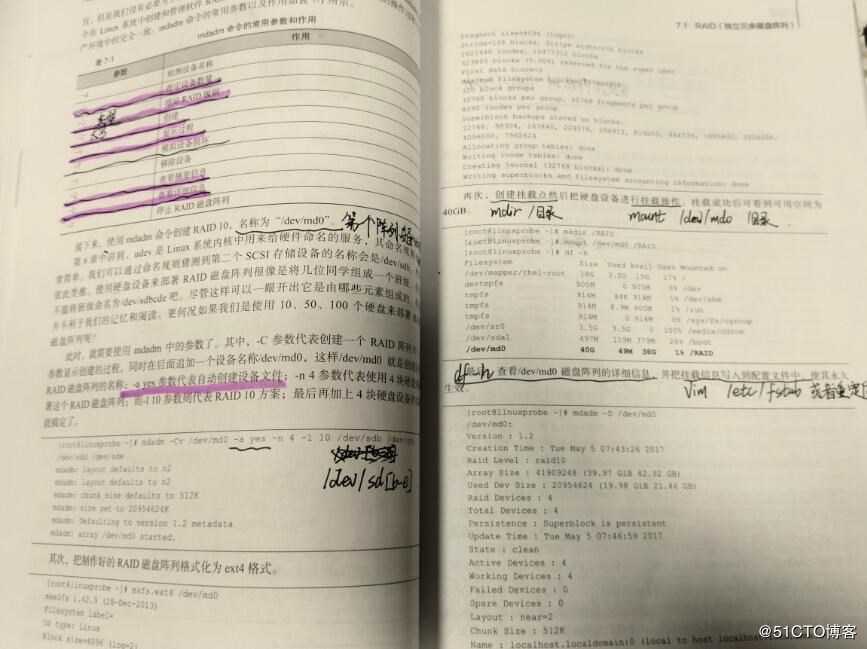 在 Linux 系统中创建和管理软件 RAID
mdadm 命令的常用参数以及作用如
mdadm 命令的常用参数和作用
表 7-1
参数
作用
检测设备名称
指定设备数量
指定 RAID 级别
类型
创建
显示过程
模拟设备损坏
移除设备
查看摘要信息
查看详细信息
停止 RAID 磁盘阵列
接下来，使用 mdadm 命令创建 RAID 10，名称为“/dev/md0”。
第 6 章中讲到，udev 是 Linux 系统内核中用来给硬件命名的服务，其命名规则
常简单。我们可以通过命名规则猜测到第二个 SCSI 存储设备的名称会是/dev/sdb，
依此类推。使用硬盘设备来部署 RAID 磁盘阵列很像是将几位同学组成一个班级，
不能将班级命名为/dev/sdbcde 吧。尽管这样可以一眼看出它是由哪些元素组成的，
并不利于我们的记忆和阅读。更何况如果我们是使用 10、50、100 个硬盘来部署
磁盘阵列呢？
此时，就需要使用 mdadm 中的参数了。其中，-C 参数代表创建一个 RAID 阵列
参数显示创建的过程，同时在后面追加一个设备名称/dev/md0，这样/dev/md0 就是创建
RAID 磁盘阵列的名称；-a yes 参数代表自动创建设备文件；-n 4 参数代表使用 4 块硬盘
署这个 RAID 磁盘阵列；而-l 10 参数则代表 RAID 10 方案；最后再加上 4 块硬盘设备
就搞定了。
[root@linuxprobe ~]# mdadm -Cv /dev/md0 -a yes -n 4 -l 10 /dev/sdb
/dev/sdd /dev/sde
/dev/sd[b-e]
mdadm: layout defaults to n2
mdadm: layout defaults to n2
mdadm: chunk size defaults to 512K
mdadm: size set to 20954624K
mdadm: Defaulting to version 1.2 metadata
mdadm: array /dev/md0 started.
其次，把制作好的 RAID 磁盘阵列格式化为 ext4 格式。
[root@linuxprobe ~]# mkfs.ext4 /dev/md0
mke2fs 1.42.9 (28-Dec-2013)
Filesystem label=
OS type: Linux
Block size=4096 (log=2)
7.1 RAID（独立冗余磁盘阵列）
First data block=0
320 block groups
32768 blocks per group, 32768 fragments per group
8192 inodes per group
Superblock backups stored on blocks:
Allocating group tables: done
Writing inode tables: done
Creating journal (32768 blocks): done
Writing superblocks and filesystem accounting information: done
再次，创建挂载点然后把硬盘设备进行挂载操作。挂载成功后可看到可用空间为
40GB。
mdir /目录
mount /dev/md0 /目录
[root@linuxprobe ~]# mkdir /RAID
[root@linuxprobe ~]# mount /dev/md0 /RAID
[root@linuxprobe ~]# df -h
Filesystem Size Used Avail Use% Mounted on
/dev/mapper/rhel-root 18G 3.0G 15G 17% /
devtmpfs 905M 0 905M 0% /dev
tmpfs 914M 84K 914M 1% /dev/shm
tmpfs 914M 8.9M 905M 1% /run
tmpfs 914M 0 914M 0% /sys/fs/cgroup
/dev/sr0 3.5G 3.5G 0 100% /media/cdrom
/dev/sda1 497M 119M 379M 24% /boot
/dev/md0 40G 49M 38G 1% /RAID
最后，查看/dev/md0 磁盘阵列的详细信息，并把挂载信息写入到配置文件中，使其永久
生效。
vim /etc/fstab
[root@linuxprobe ~]# mdadm -D /dev/md0
/dev/md0:
Version : 1.2
Creation Time : Tue May 5 07:43:26 2017
Raid Level : raid10
Array Size : 41909248 (39.97 GiB 42.92 GB)
Used Dev Size : 20954624 (19.98 GiB 21.46 GB)
Raid Devices : 4
Total Devices : 4
Persistence : Superblock is persistent
Update Time : Tue May 5 07:46:59 2017
State : clean
Active Devices : 4
Working Devices : 4
Failed Devices : 0
Spare Devices : 0
Layout : near=2
Chunk Size : 512K
Name : localhost.localdomain:0 (local to host localhost
@51CTO博客